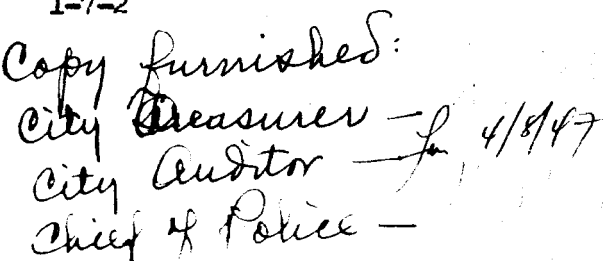 1-7-2
Copy furnished:
City Treasurer —
City Auditor — 4/8/47
Chief of Police —